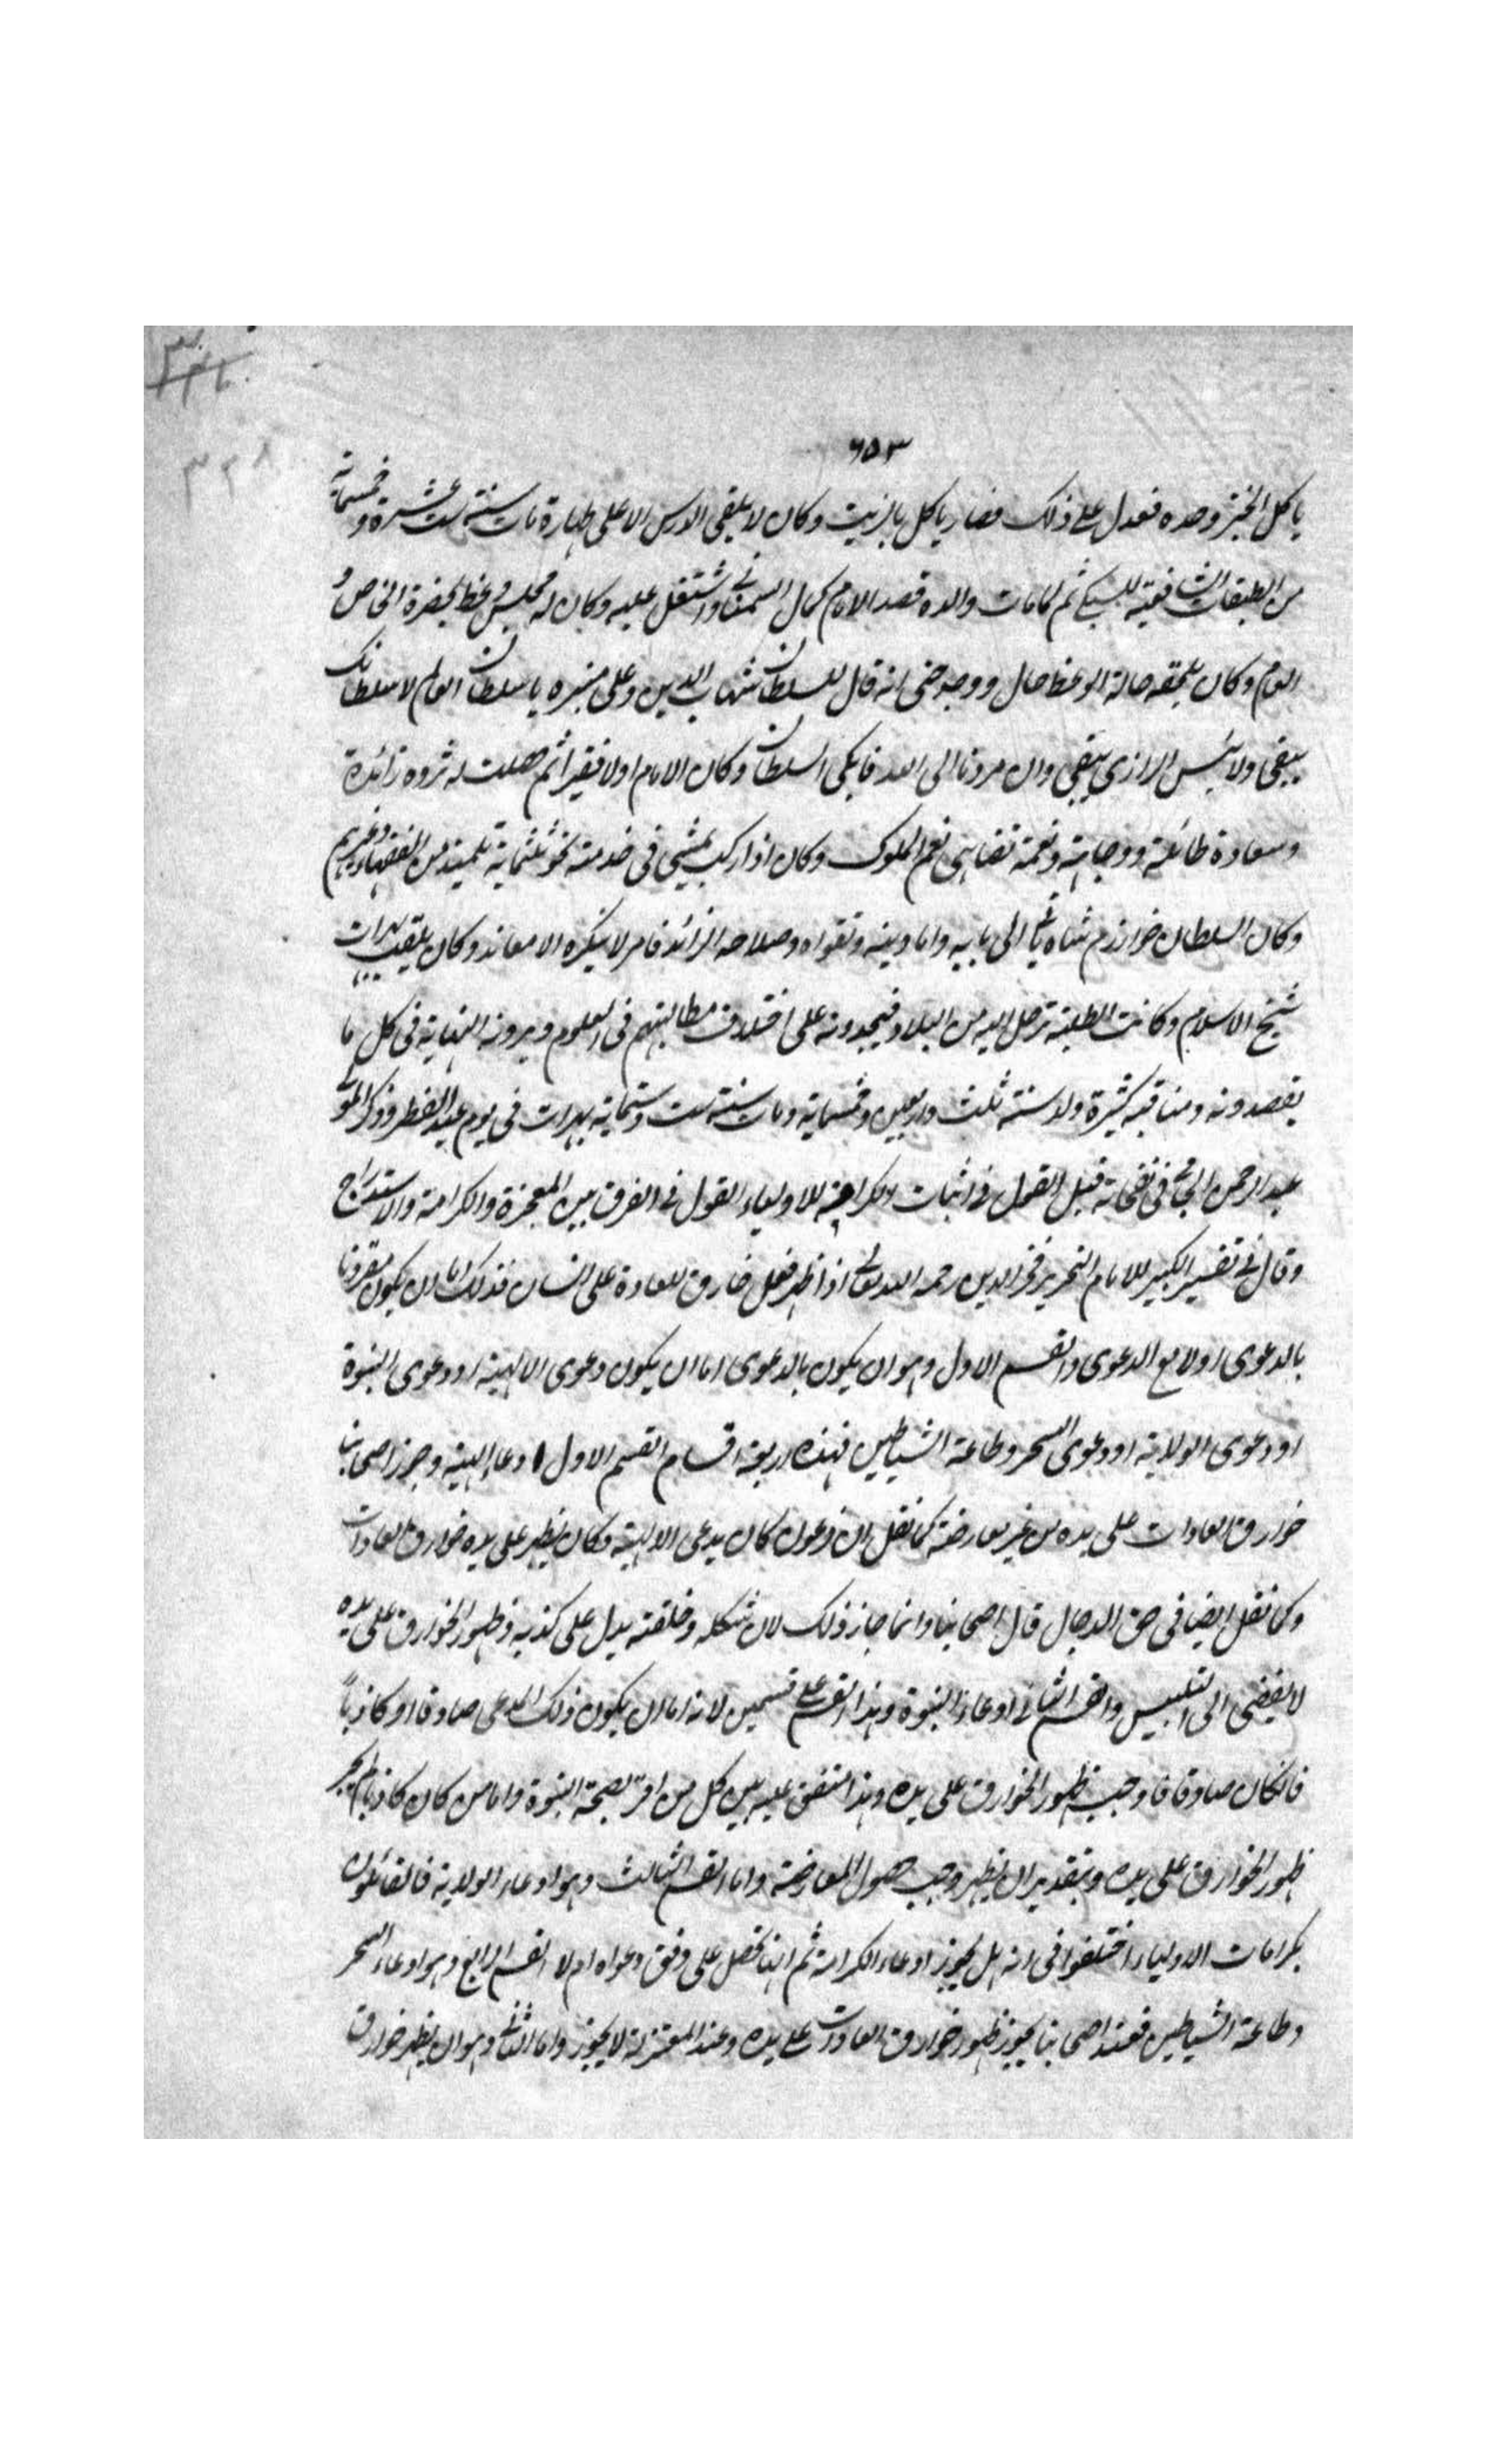 ٦٥٣
ياكل الخبز وحده فعدل على ذلك فصار ياكل بالزيت وكان لا يلقى الدرس الا على طهارة مات سنة ست عشرة وخمسماية
من الطبقات الشافعية للسبكي ثم لما مات والده قصد الامام كمال السمناني واشتغل عليه وكان له مجلس وعظ يحضره الخاص و
العام وكان يلحقه حالة الوعظ حال ووجد حتى انه قال للسلطان شهاب الدين وعلى منبره يا سلطان العالم لا سلطانك
يبقى ولا تلبيس الرازي يبقى وان مردنا الى الله فابكى السلطان وكان الامام اولا فقيرا ثم حصلت له ثروه زائدة
وسعادة طائلة ووجاهة ونعمة تضاهى نعم الملوك وكان اذا ركب يمشى فى خدمته نحو ثلثماية تلميذ من الفقهاء وغيرهم
وكان السلطان خوارزم شاه ياتي الى بابه واما دينه وتقواه وصلاحه الزائد فامر لا ينكره الا معاند وكان يلقب بهرات
شيخ الاسلام وكانت الطلبة ترحل اليه من البلاد فيجدونه على اختلاف مطالبتهم فى العلوم ويرونه النهاية فى كل ما
يقصدونه ومناقبه كثيرة ولد سنة ثلث واربعين وخمسماية ومات سنة ست وستماية بهرات فى يوم عيد الفطر وذكر المولى
عبد الرحمن الجامي فى نفحاته قبل القول في اثبات الكرامة للاولياء القول في الفرق بين المعجزة والكرامة والاستدراج
وقال في تفسير الكبير للامام النحرير فخر الدين رحمه الله تعالى اذا ظهر فعل خارق للعادة على انسان فذلك اما ان يكون مقرونا
بالدعوى اولا مع الدعوى والقسم الاول وهو ان يكون بالدعوى اما ان يكون دعوى الالهية او دعوى النبوة
او دعوى الولاية او دعوى السحر وطاعة الشياطين فهذه اربعة اقسام القسم الاول ادعاء الهية وجوز اصحابنا
خوارق العادات على يده من غير معارضة كما نقل ان فرعون كان يدعى الالهية وكان يظهر على يده خوارق العادات
وكما نقل ايضا فى حق الدجال قال اصحابنا وانما جاز ذلك لان شكله وخلقته يدل على كذبه وظهور الخوارق على يده
لا يفضى الى التلبيس والقسم الثاني ادعاء النبوة وهذا القسم على قسمين لانه اما ان يكون ذلك المدعى صادقا او كاذباً
فان كان صادقا فاوجب ظهور الخوارق على يده وهذا متفق عليه بين كل من اقر بصحة النبوة واما من كان كاذبا لم يجز
ظهور الخوارق على يده وبتقدير ان يظهر وجب حصول المعارضة واما القسم الثالث وهو ادعاء الولاية فالقائلون
بكرامات الاولياء اختلفوا فى انه هل يجوز ادعاء الكرامة ثم انها تحصل على وفق دعواه ام لا القسم الرابع وهو ادعاء السحر
وطاعة الشياطين فعند اصحابنا يجوز ظهور خوارق العادات على يده وعند المعتزلة لا يجوز واما الثاني وهو ان يظهر خوارق